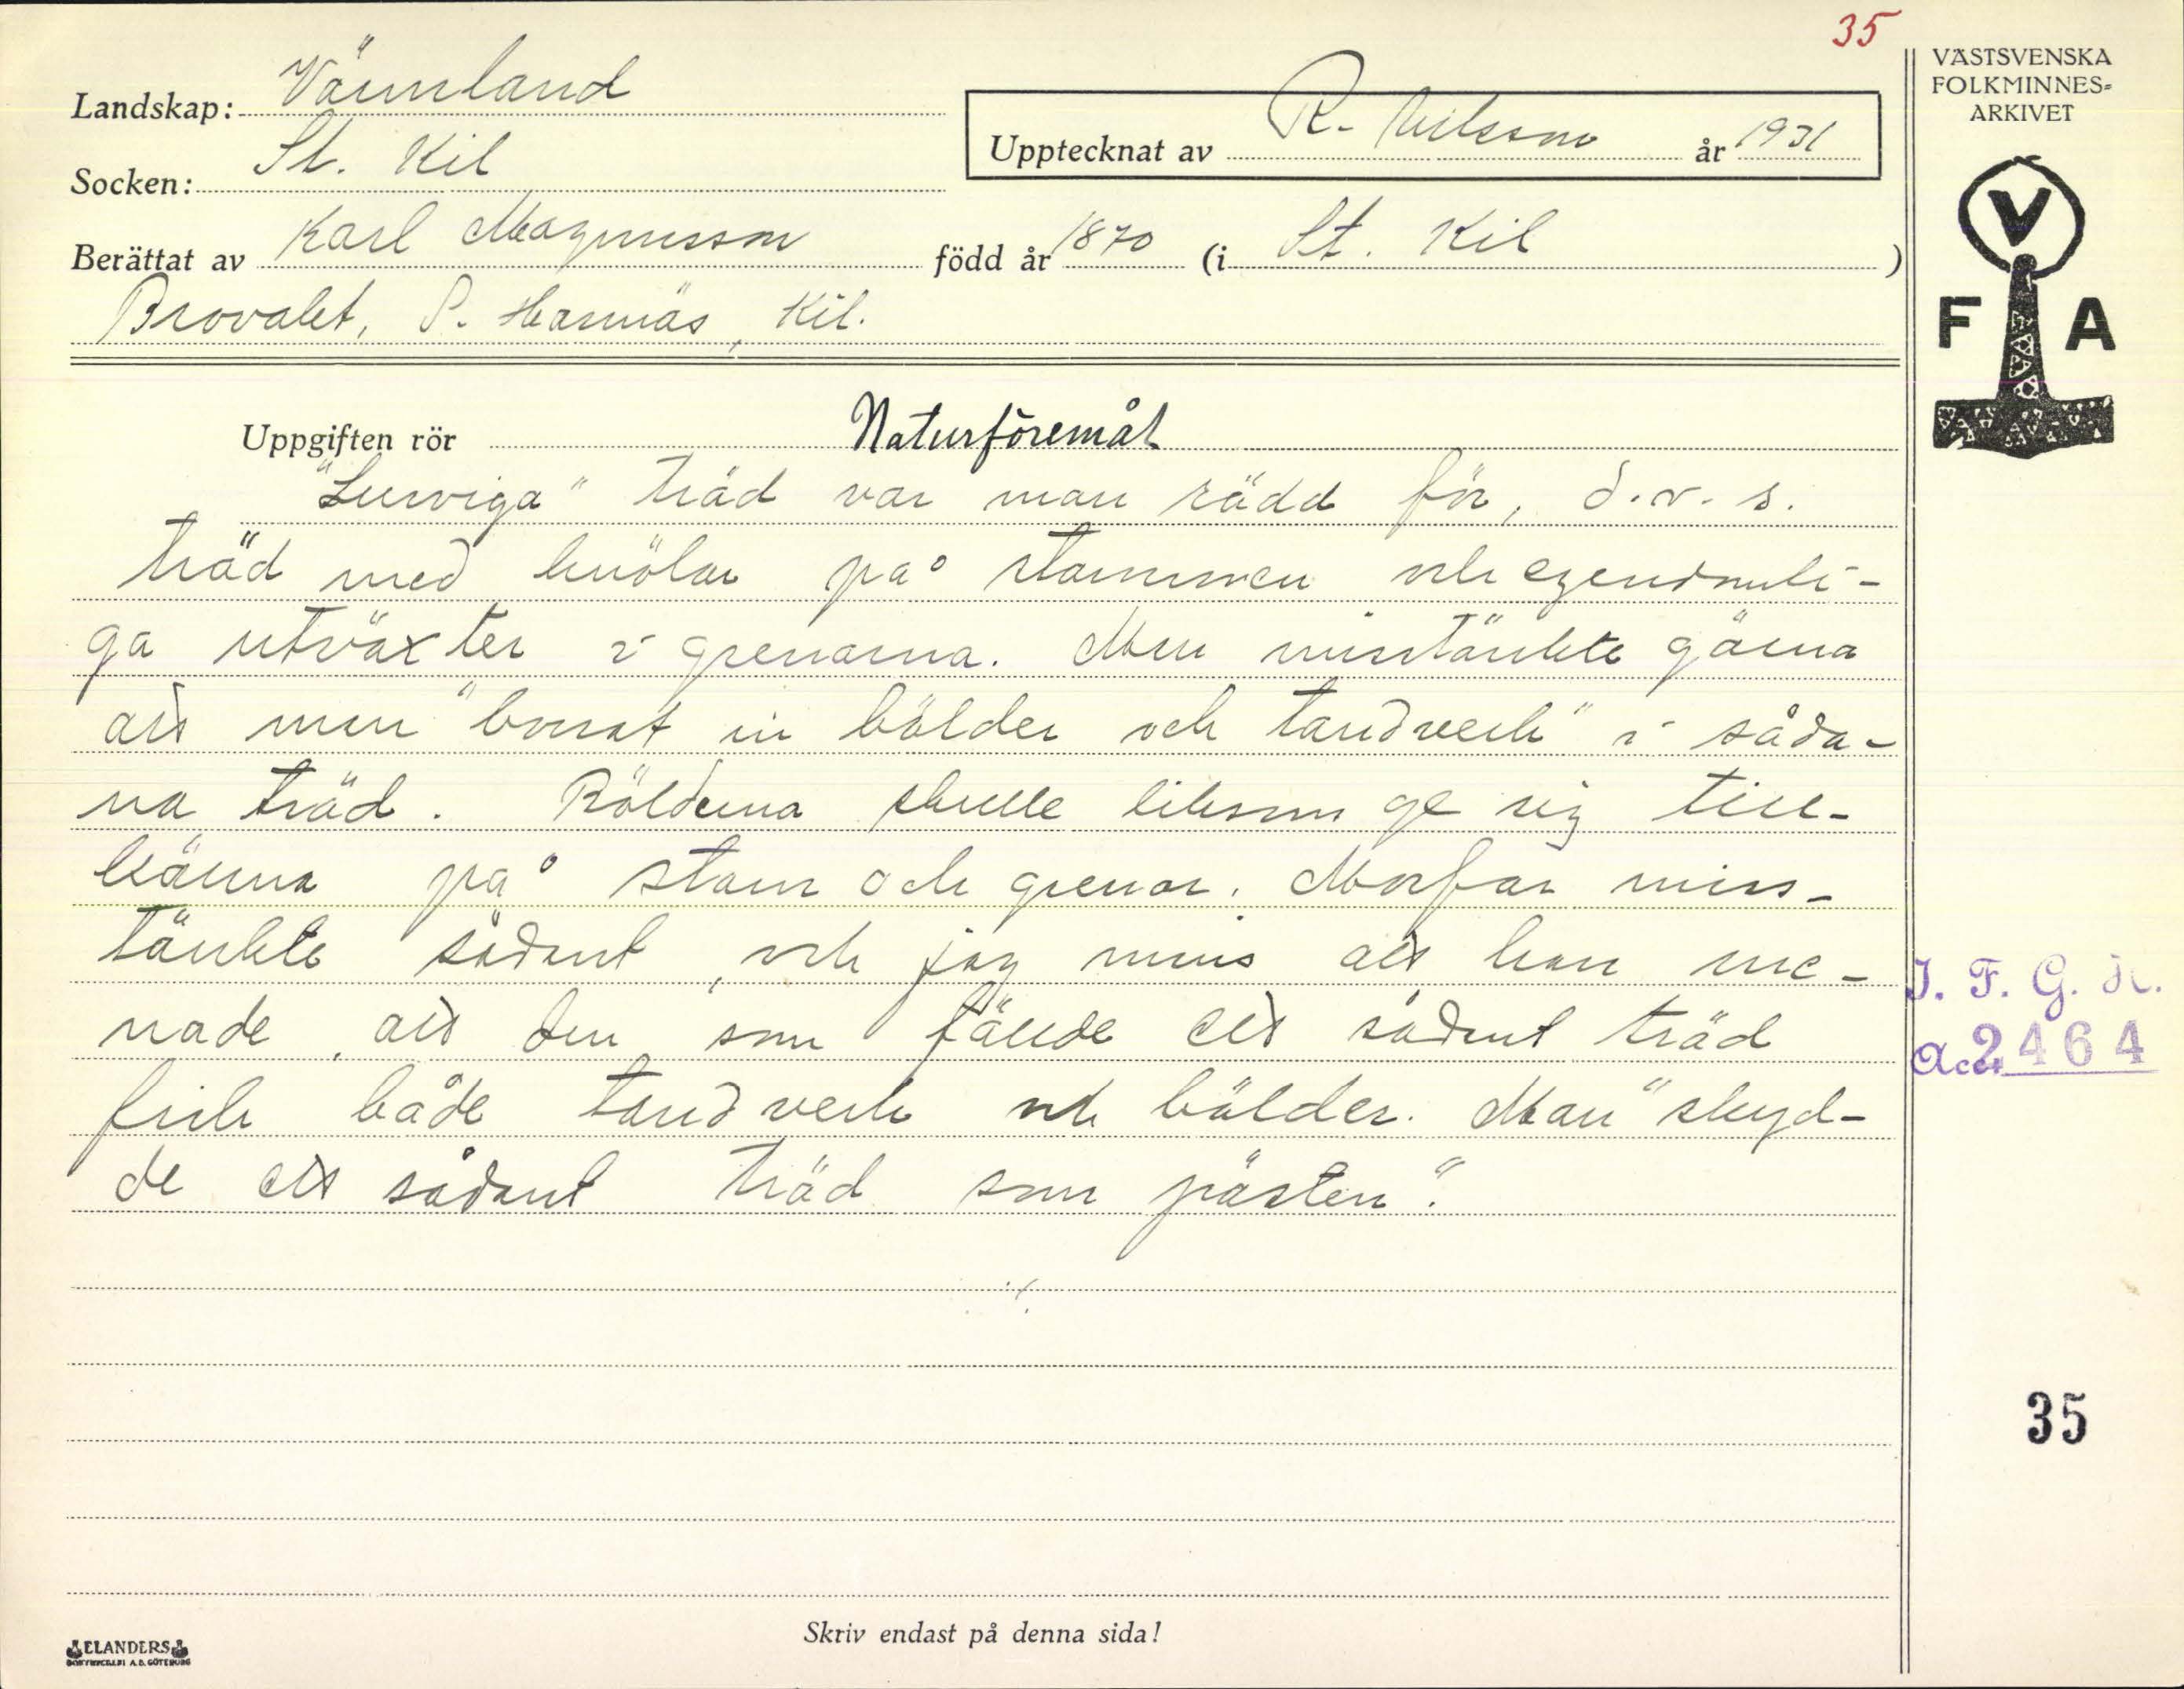 35
VÄSTSVENSKA
FOLKMINNES-
ARKIVET
Landskap: Värmland
Upptecknat av R. Nilsson år 1931
Socken: St. Kil
Berättat av Karl Magnusson född år 1870 (i St. Kil)
Brovalet, S. Hannäs, Kil.
V
F A
Uppgiften rör Naturföremål
"Lurviga" träd var man rädd för, d.v.s.
träd med knölar på stammen och egendomli-
ga utväxter i grenarna. Man misstänkte gärna
att man "borrat in bölder och tandverk" i såda-
na träd. Bölderna skulle liksom ge sig till-
känna på stam och grenar. Morfar miss-
tänkte sådant, och jag minns att han me-
nade, att den som fällde ett sådant träd
fick både tandverk och bölder. Man "skyd-
de ett sådant träd som pästen".
I. F. G. H.
Acc. 2464
35
Skriv endast på denna sida!
ELANDERS
BOKTRYCKERI A.B. GÖTEBORG